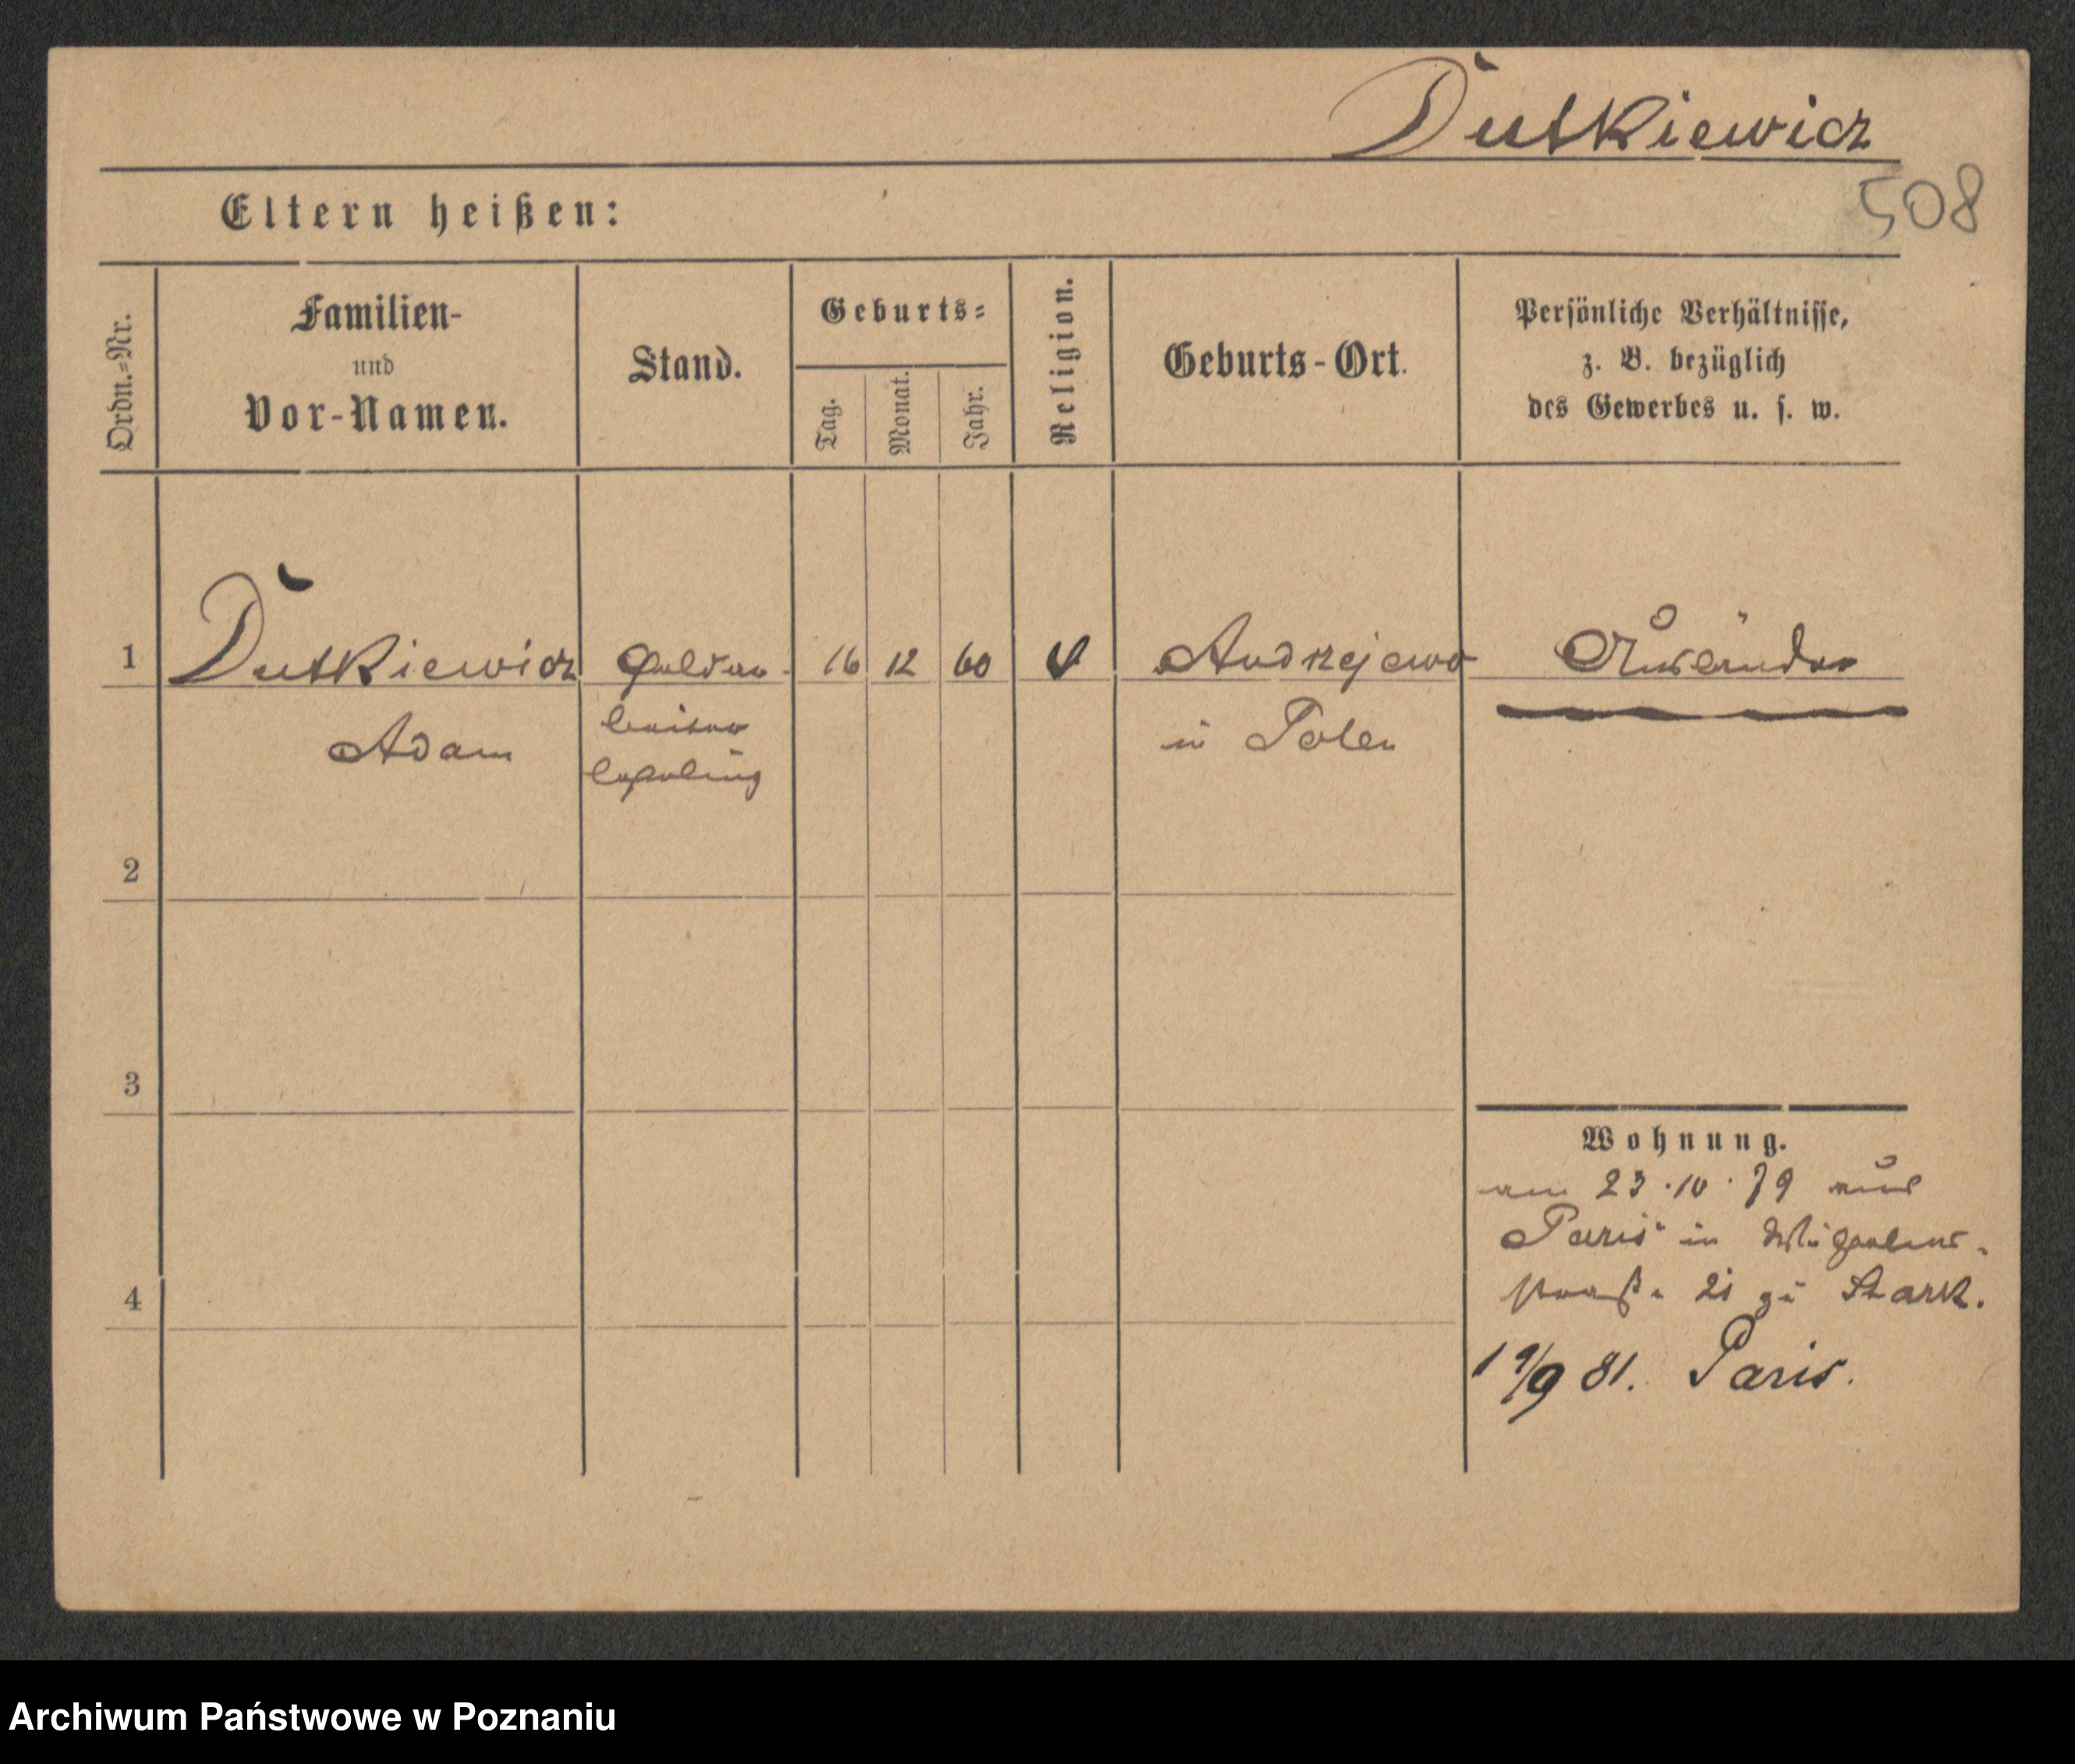 Dutkiewicz
508
Eltern heißen:
Ordn.-Nr.
Familien-
und
Vor-Namen.
Stand.
Geburts-
Tag.
Monat.
Jahr.
Religion.
Geburts-Ort.
Persönliche Verhältnisse,
z. B. bezüglich
des Gewerbes u. s. w.
1 Dutkiewicz 16 12 60 Andrzejewo Ausländer
Adam in Polen
2
3
Wohnung.
am 23.10.79 aus
Paris in
straße 21 zu Stark.
4
19/9 81. Paris.
Archiwum Państwowe w Poznaniu